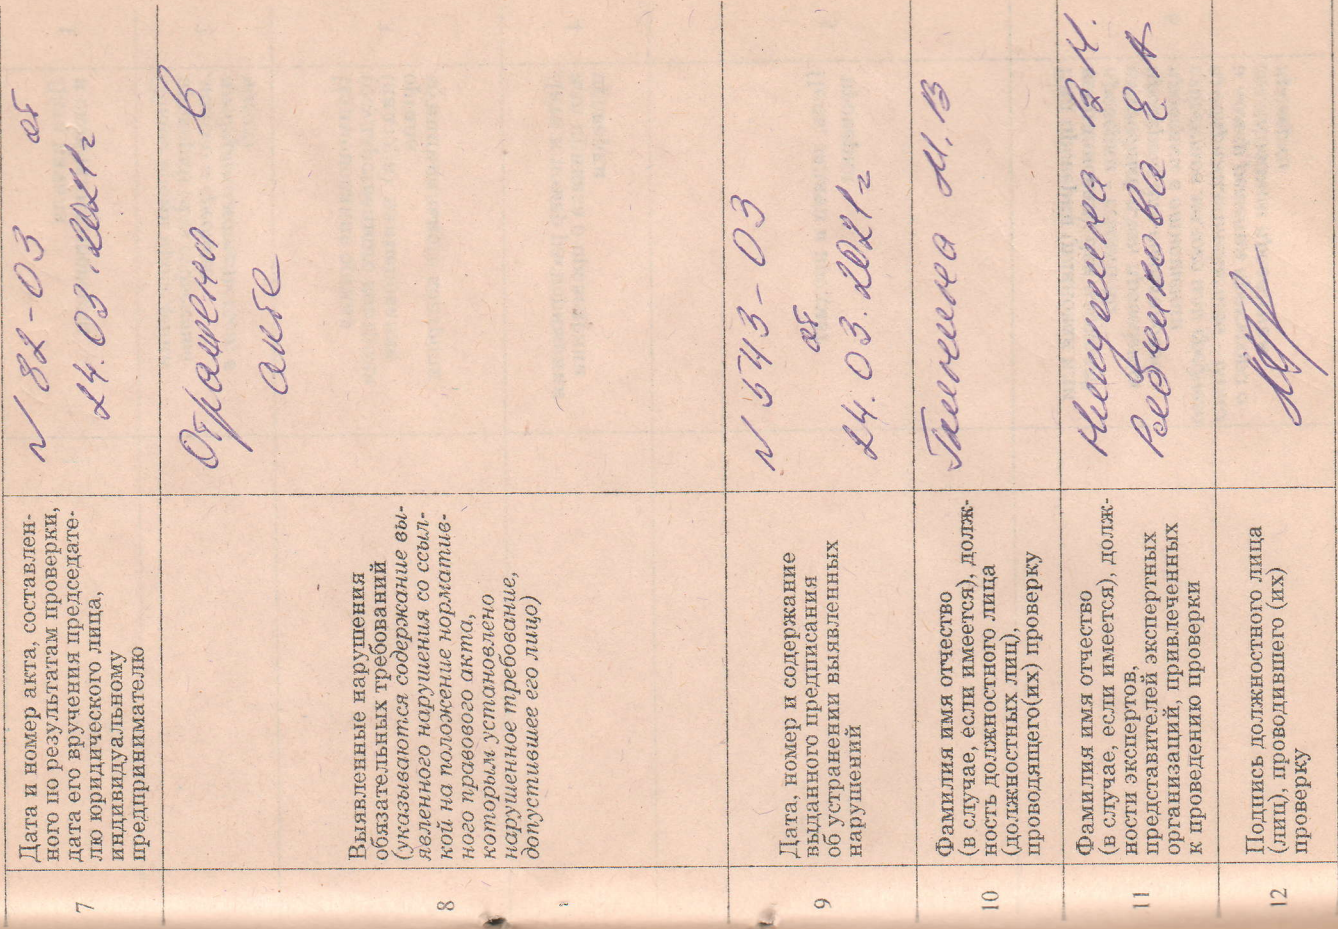 7
Дата и номер акта, составлен-
ного по результатам проверки,
дата его вручения председате-
лю юридического лица,
индивидуальному
предпринимателю
N 82-03 от
24.03.2021г
8
Выявленные нарушения
обязательных требований
(указываются содержание вы-
явленного нарушения со ссыл-
кой на положение норматив-
ного правового акта,
которым установлено
нарушенное требование,
допустившее его лицо)
Отражены в
акте
9
Дата, номер и содержание
выданного предписания
об устранении выявленных
нарушений
N 543-03
от
24.03.2021г
10
Фамилия имя отчество
(в случае, если имеется), долж-
ность должностного лица
(должностных лиц),
проводящего(их) проверку
М.В
11
Фамилия имя отчество
(в случае, если имеется), долж-
ности экспертов,
представителей экспертных
организаций, привлеченных
к проведению проверки
В Н.
Е А
12
Подпись должностного лица
(лиц), проводившего (их)
проверку